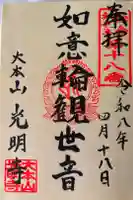 奉拝
令和八年
四月十八日
如意輪観世音
大本山 光明寺